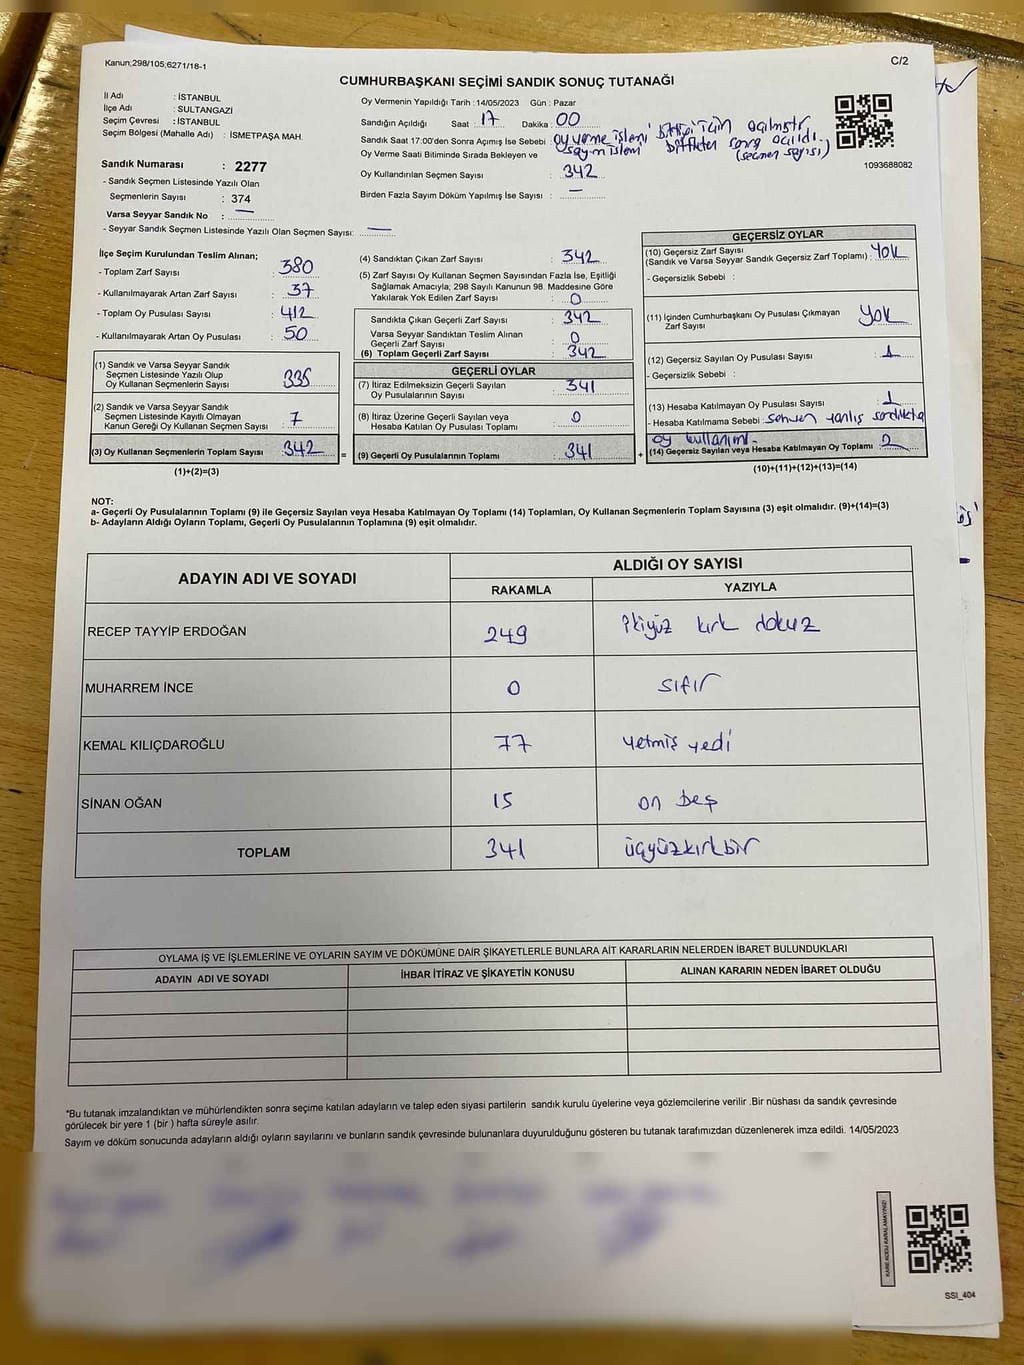 Kanun;298/105;6271/18-1
C/2
CUMHURBAŞKANI SEÇİMİ SANDIK SONUÇ TUTANAĞI
İl Adı : İSTANBUL
İlçe Adı : SULTANGAZİ
Seçim Çevresi : İSTANBUL
Seçim Bölgesi (Mahalle Adı) : İSMETPAŞA MAH.
Sandık Numarası : 2277
- Sandık Seçmen Listesinde Yazılı Olan
Seçmenlerin Sayısı : 374
Varsa Seyyar Sandık No : —
- Seyyar Sandık Seçmen Listesinde Yazılı Olan Seçmen Sayısı: —
Oy Vermenin Yapıldığı Tarih : 14/05/2023 Gün : Pazar
Sandığın Açıldığı Saat : 17 Dakika : 00
Sandık Saat 17:00'den Sonra Açımış İse Sebebi : oy verme işlemi bittiği için açılmıştr
Oy Verme Saati Bitiminde Sırada Bekleyen ve sayım işlemi bittikten sonra açıldı.
(seçmen sayısı)
Oy Kullandırılan Seçmen Sayısı : 342
Birden Fazla Sayım Döküm Yapılmış İse Sayısı : —
1093688082
İlçe Seçim Kurulundan Teslim Alınan;
- Toplam Zarf Sayısı : 380
- Kullanılmayarak Artan Zarf Sayısı : 37
- Toplam Oy Pusulası Sayısı : 412
- Kullanılmayarak Artan Oy Pusulası : 50
(1) Sandık ve Varsa Seyyar Sandık
Seçmen Listesinde Yazılı Olup
Oy Kullanan Seçmenlerin Sayısı : 335
(2) Sandık ve Varsa Seyyar Sandık
Seçmen Listesinde Kayıtlı Olmayan
Kanun Gereği Oy Kullanan Seçmen Sayısı : 7
(3) Oy Kullanan Seçmenlerin Toplam Sayısı : 342 =
(1)+(2)=(3)
(4) Sandıktan Çıkan Zarf Sayısı : 342
(5) Zarf Sayısı Oy Kullanan Seçmen Sayısından Fazla İse, Eşitliği
Sağlamak Amacıyla; 298 Sayılı Kanunun 98. Maddesine Göre
Yakılarak Yok Edilen Zarf Sayısı : 0
Sandıkta Çıkan Geçerli Zarf Sayısı : 342
Varsa Seyyar Sandıktan Teslim Alınan
Geçerli Zarf Sayısı : 0
(6) Toplam Geçerli Zarf Sayısı : 342
GEÇERLİ OYLAR
(7) İtiraz Edilmeksizin Geçerli Sayılan
Oy Pusulalarının Sayısı : 341
(8) İtiraz Üzerine Geçerli Sayılan veya
Hesaba Katılan Oy Pusulası Toplamı : 0
(9) Geçerli Oy Pusulalarının Toplamı : 341 +
GEÇERSİZ OYLAR
(10) Geçersiz Zarf Sayısı
(Sandık ve Varsa Seyyar Sandık Geçersiz Zarf Toplamı) : Yok
- Geçersizlik Sebebi :
(11) İçinden Cumhurbaşkanı Oy Pusulası Çıkmayan
Zarf Sayısı : Yok
(12) Geçersiz Sayılan Oy Pusulası Sayısı : 1
- Geçersizlik Sebebi :
(13) Hesaba Katılmayan Oy Pusulası Sayısı : 1
- Hesaba Katılmama Sebebi : sehven yanlış sandıkta
oy kullanımı-
(14) Geçersiz Sayılan veya Hesaba Katılmayan Oy Toplamı : 2
(10)+(11)+(12)+(13)=(14)
NOT:
a- Geçerli Oy Pusulalarının Toplamı (9) ile Geçersiz Sayılan veya Hesaba Katılmayan Oy Toplamı (14) Toplamları, Oy Kullanan Seçmenlerin Toplam Sayısına (3) eşit olmalıdır. (9)+(14)=(3)
b- Adayların Aldığı Oyların Toplamı, Geçerli Oy Pusulalarının Toplamına (9) eşit olmalıdır.
ADAYIN ADI VE SOYADI
ALDIĞI OY SAYISI
RAKAMLA YAZIYLA
RECEP TAYYİP ERDOĞAN 249 ikiyüz kırk dokuz
MUHARREM İNCE 0 sıfır
KEMAL KILIÇDAROĞLU 77 yetmiş yedi
SİNAN OĞAN 15 on beş
TOPLAM 341 üçyüzkırkbir
OYLAMA İŞ VE İŞLEMLERİNE VE OYLARIN SAYIM VE DÖKÜMÜNE DAİR ŞİKAYETLERLE BUNLARA AİT KARARLARIN NELERDEN İBARET BULUNDUKLARI
ADAYIN ADI VE SOYADI İHBAR İTİRAZ VE ŞİKAYETİN KONUSU ALINAN KARARIN NEDEN İBARET OLDUĞU
*Bu tutanak imzalandıktan ve mühürlendikten sonra seçime katılan adayların ve talep eden siyasi partilerin sandık kurulu üyelerine veya gözlemcilerine verilir .Bir nüshası da sandık çevresinde
görülecek bir yere 1 (bir ) hafta süreyle asılır.
Sayım ve döküm sonucunda adayların aldığı oyların sayılarını ve bunların sandık çevresinde bulunanlara duyurulduğunu gösteren bu tutanak tarafımızdan düzenlenerek imza edildi. 14/05/2023
KARE KODU KARALAMAYINIZ!
SSI_404